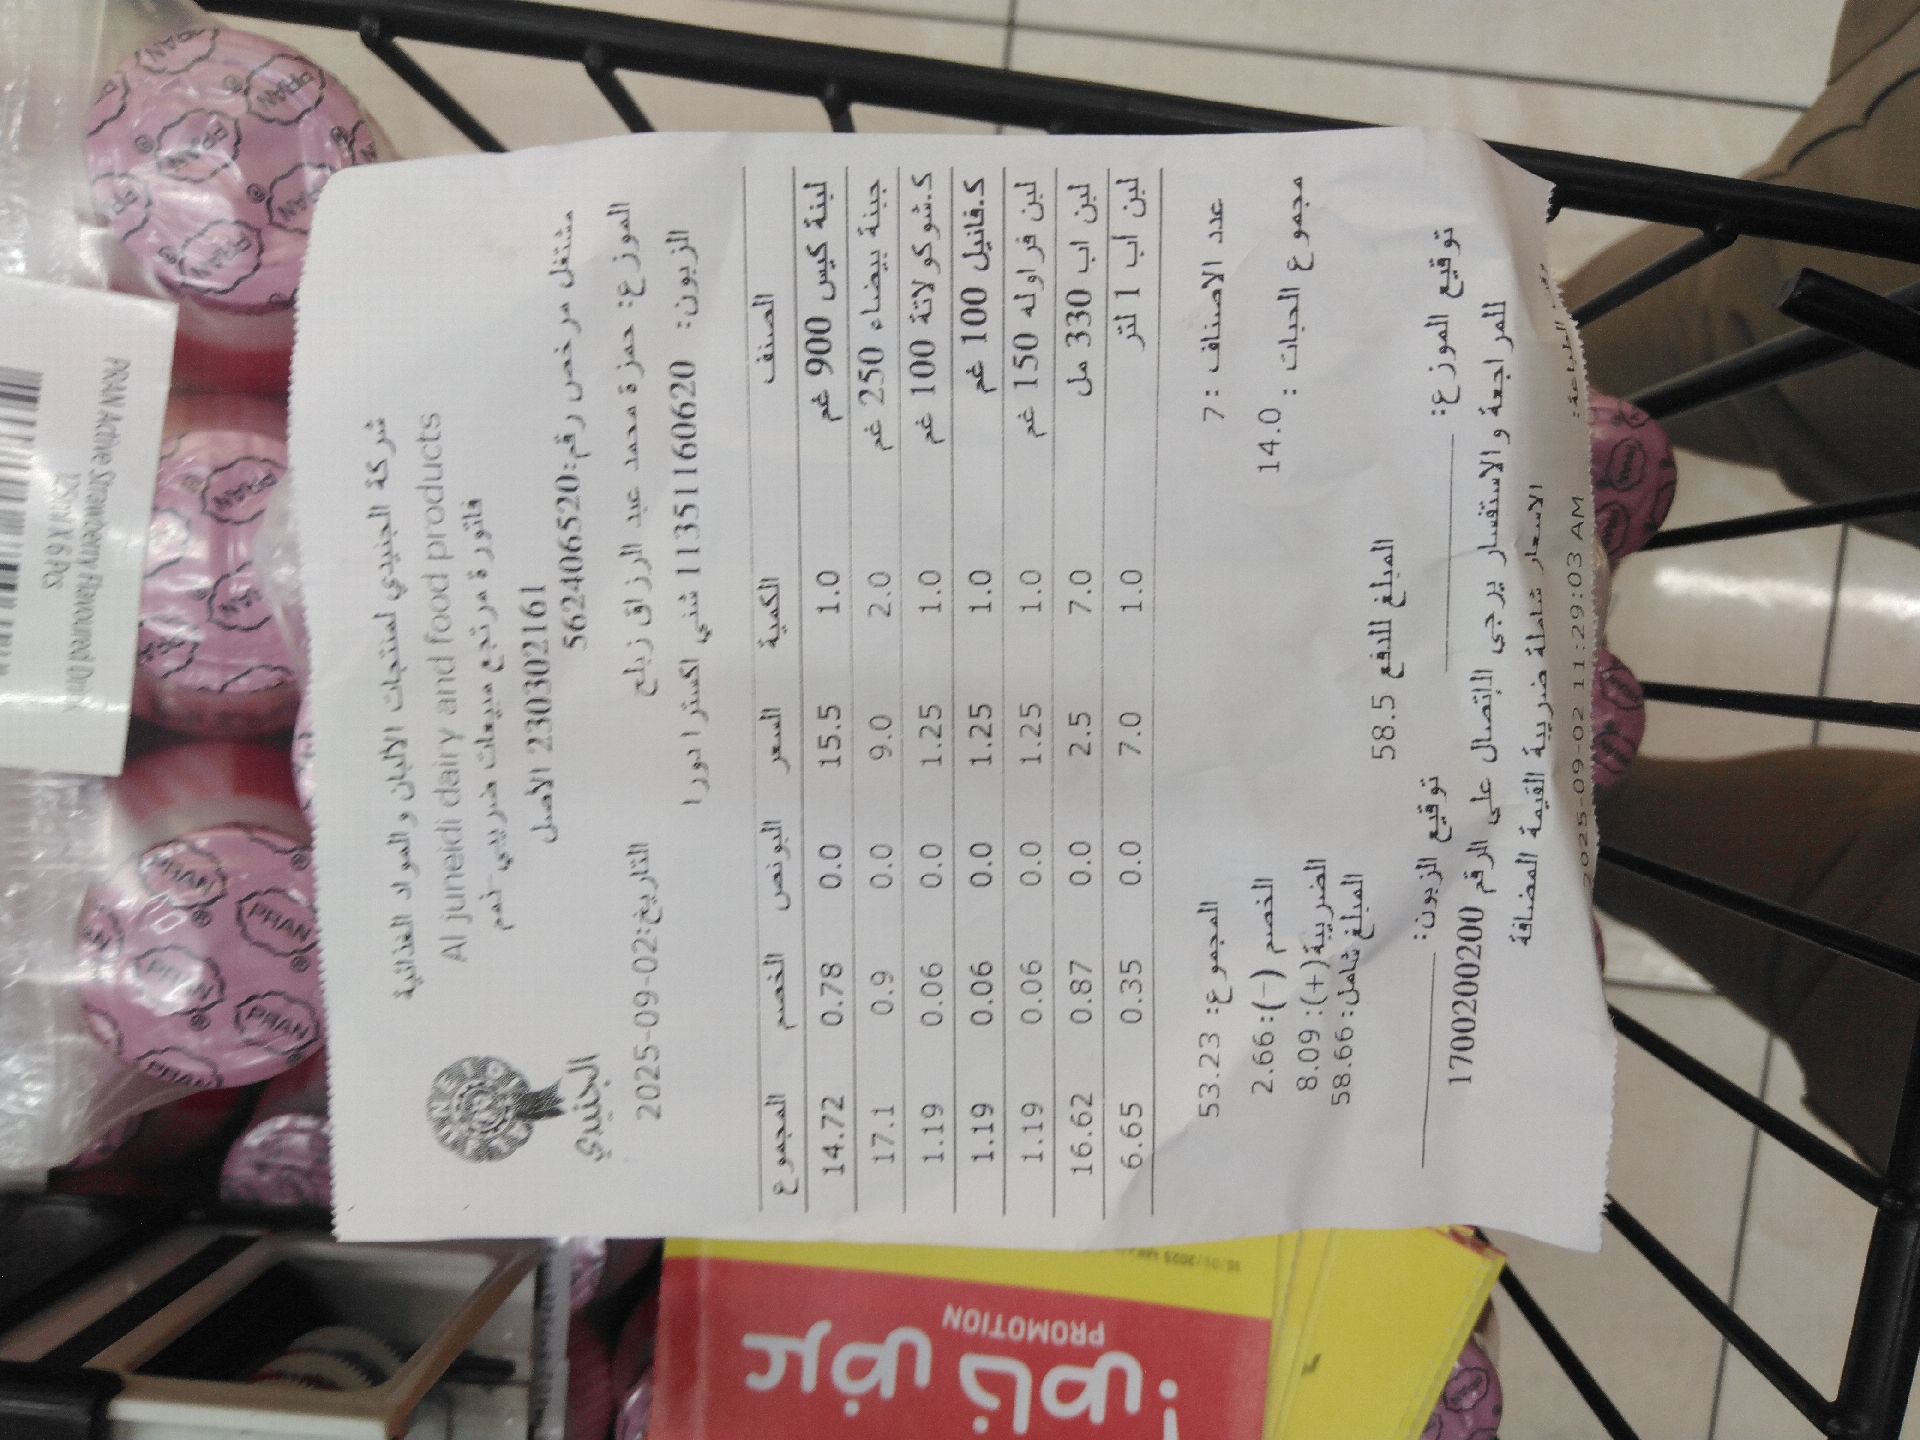 شركة الجنيدي لمنتجات الالبان والمواد الغذائية
Al juneidi dairy and food products
فاتورة مرتجع مبيعات ضريبي-نعم
230302161 الاصل
مشتغل مرخص رقم:562406520
الجنيدي
الموزع: حمزة محمد عبد الرزاق زبلح
التاريخ:2025-09-02
الزبون: 1135116062‎0 شني اكسترا دورا
الصنف الكمية السعر البونص الخصم المجموع
لبنة كيس 900 غم 1.0 15.5 0.0 0.78 14.72
جبنة بيضاء 250 غم 2.0 9.0 0.0 0.9 17.1
ك.شوكولاتة 100 غم 1.0 1.25 0.0 0.06 1.19
ك.فانيل 100 غم 1.0 1.25 0.0 0.06 1.19
لبن فراوله 150 غم 1.0 1.25 0.0 0.06 1.19
لبن اب 330 مل 7.0 2.5 0.0 0.87 16.62
لبن اب 1 لتر 1.0 7.0 0.0 0.35 6.65
عدد الاصناف : 7
المجموع: 53.23
مجموع الحبات : 14.0
الخصم (-): 2.66
الضريبة(+): 8.09
المبلغ شامل: 58.66
المبلغ للدفع 58.5
توقيع الموزع:
توقيع الزبون:
للمراجعة والاستفسار يرجى الاتصال على الرقم 1700200200
الاسعار شاملة ضريبة القيمة المضافة
2025-09-02 11:29:03 AM
PRAN Active Strawberry Flavoured Drink
125ml X 6 Pcs
PRAN
عرض خاص!
PROMOTION